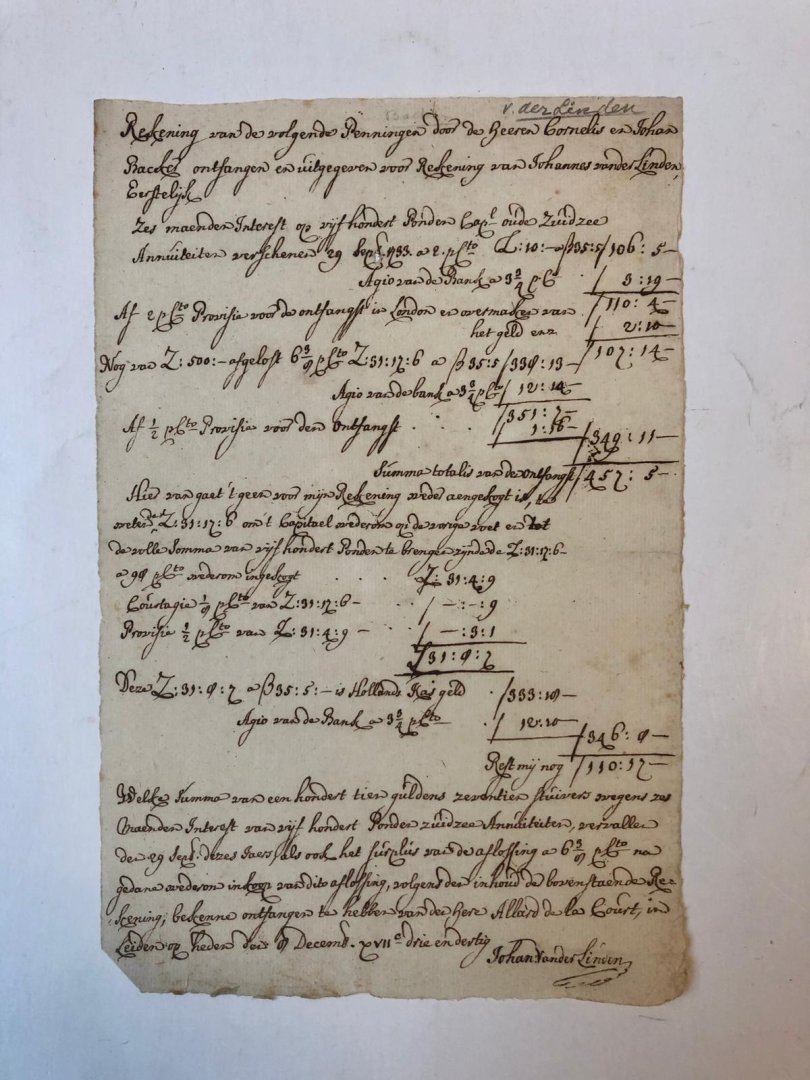 v. der Linden
Rekening van de volgende Penningen door de Heeren Cornelis en Johan
Backer ontfangen en uitgegeven voor Rekening van Johannes vander Linden,
Eerstelijk
Zes maenden Interest op vijf hondert Ponden Cap.l oude Zuidzee
Annuiteiten verschenen 29 Sept. 1733. a 2. pCto L: 10:— a β35:5 / 106: 5—
Agio van de Bank a 3¾ pCto / 3: 19—
/ 110: 4—
Af 2 pCto Provisie voor de ontfangst in London en overmaken van
het geld enz. / 2: 10—
/ 107: 14—
Nog van L: 500:— afgelost 6⅜ pCto L: 31: 17: 6 a β 35: 5 / 338: 13—
Agio van de bank a 3¾ pCto / 12: 14—
/ 351: 7—
Af ½ pCto Provisie voor den ontfangst . . . / 1: 16—
/ 349: 11—
Summa totalis van de ontfangst / 457: 5—
Hier van gaet 't geen voor mijn Rekening weder aengekogt is, te
weten de L: 31: 17: 6 om 't Capitael wederom op de vorige voet en tot
de volle Somma van vijf hondert Ponden te brengen zijnde de L: 31: 17: 6—
a 98 pCto wederom ingekogt . . . L: 31: 4: 9
Courtagie ⅛ pCto van L: 31: 17: 6— . . / —: —: 9
Provisie ½ pCto van L: 31: 4: 9 — . / —: 3: 1
L 31: 8: 7
Deze L: 31: 8: 7 a β 35: 5:— is Hollands Kas geld . / 333: 18—
Agio van de Bank a 3¾ pCto . / 12: 10—
/ 346: 8—
Rest mij nog / 110: 17—
Welke Summa van een hondert tien guldens zeventien stuivers wegens zes
Maenden Interest van vijf hondert Ponden zuidzee Annuiteiten, vervallen
den 29 Sept. dezes Jaers, als ook het surplus van de aflossing a 6⅜ pCto na
gedane wederom inkoop van dito aflossing, volgens den inhoud de bovenstaende Re-
kening, bekenne ontfangen te hebben van den Here Allard de la Court, in
Leiden op heden den 8 Decemb. XVIIc drie en dertig
Johan Vander Linden